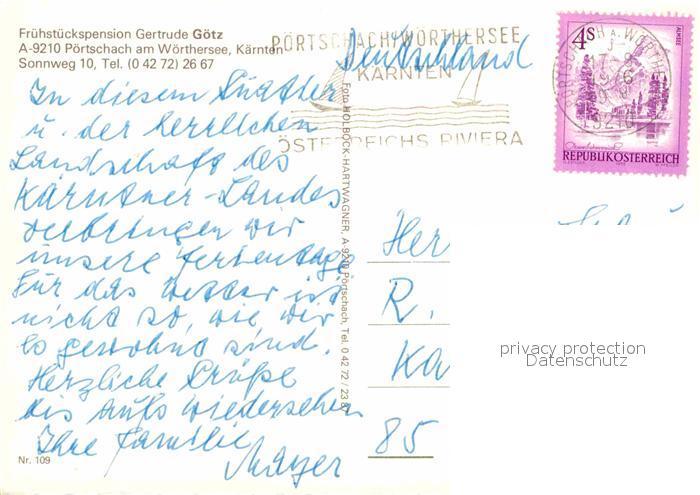 Frühstückspension Gertrude Götz
A-9210 Pörtschach am Wörthersee, Kärnten
Sonnweg 10, Tel. (0 42 72) 26 67
PÖRTSCHACH/WÖRTHERSEE
KÄRNTEN
ÖSTERREICHS RIVIERA
Deutschland
4S
ALMSEE
REPUBLIK ÖSTERREICH
In diesem
u. der herrlichen
Landschaft des
Kärntner-Landes
verbringen wir
unsere Ferientage
Für das Wetter ist
nicht so, wie wir
es gewohnt sind.
Herzliche Grüße
bis aufs wiedersehen
Ihre Familie
Mayer
Nr. 109
Foto HOLBÖCK-HARTWAGNER, A-9210 Pörtschach, Tel. 0 42 72 / 23 87
Her
R.
Ka
85
privacy protection
Datenschutz